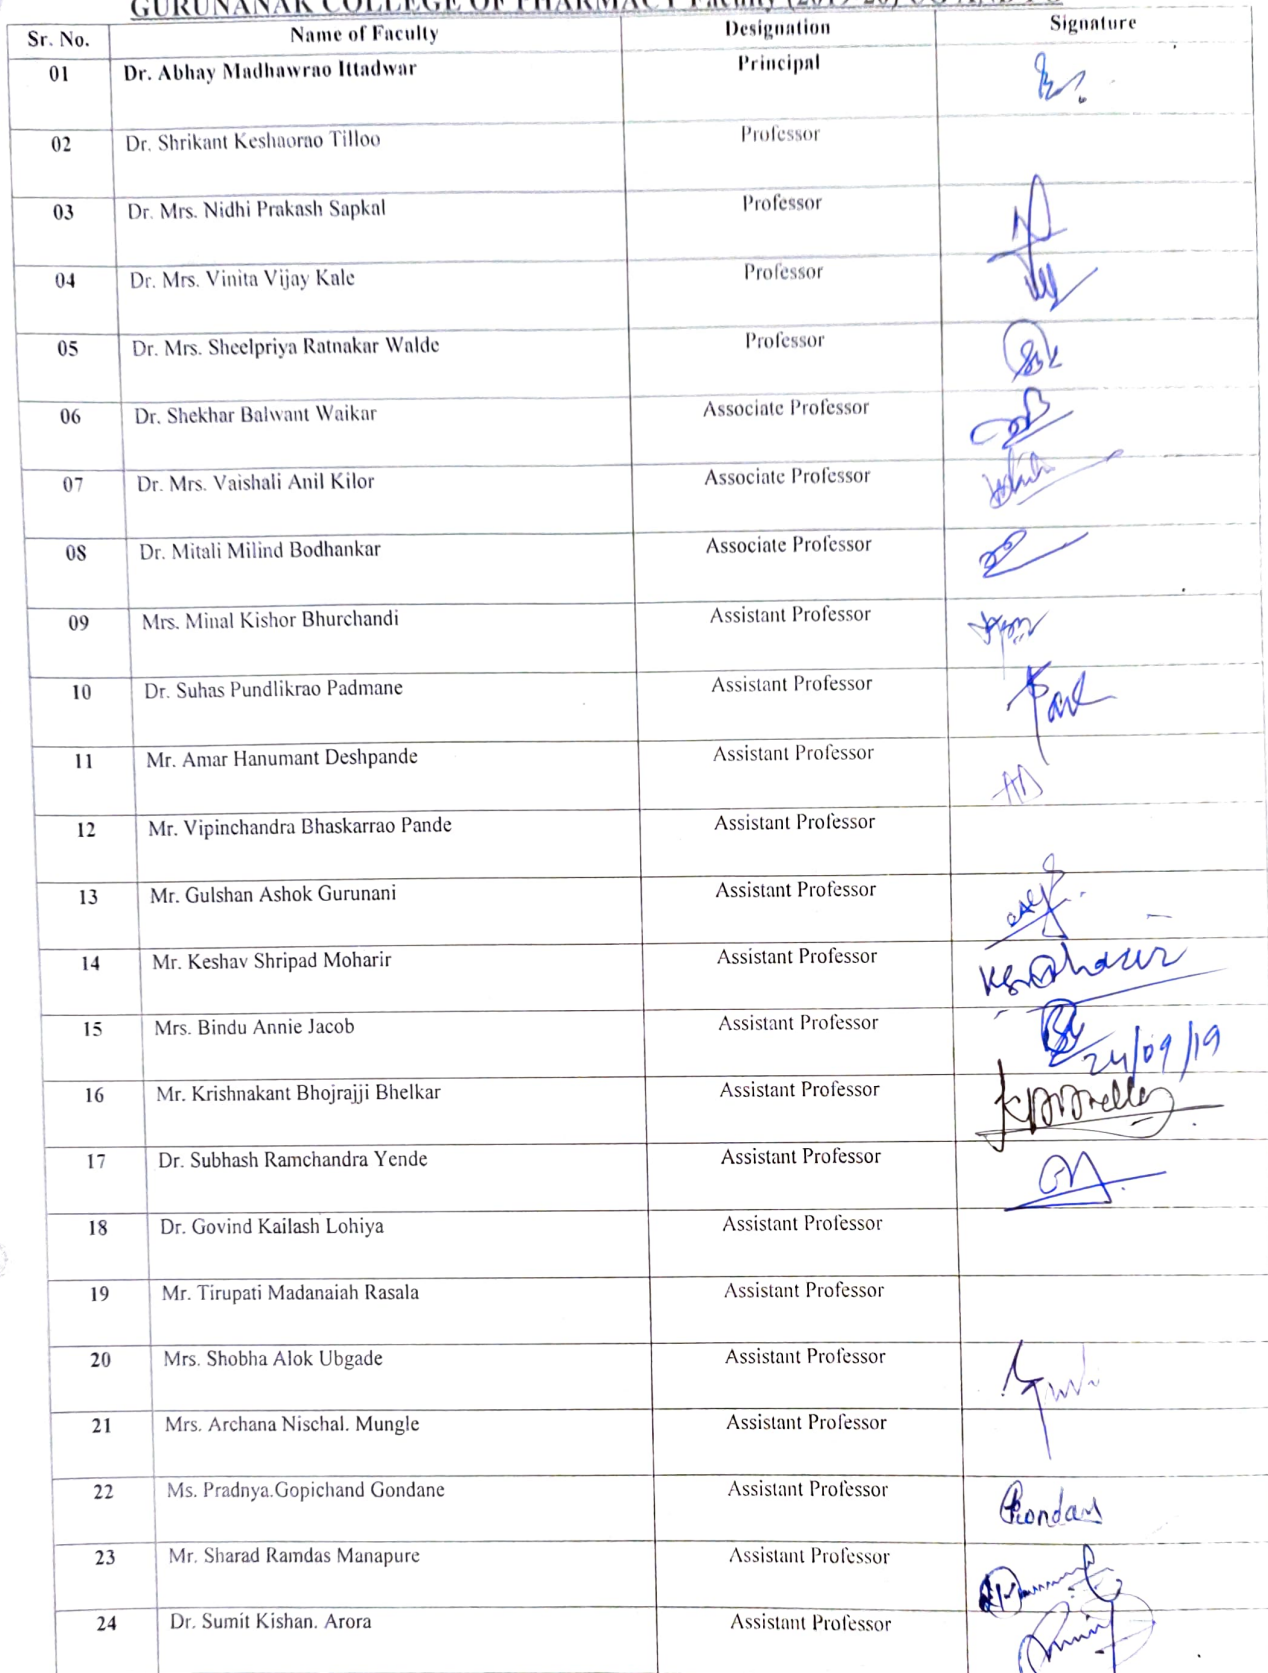 GURUNANAK COLLEGE OF PHARMACY Faculty (2019-20)
Sr. No. Name of Faculty Designation Signature
01 Dr. Abhay Madhawrao Ittadwar Principal
02 Dr. Shrikant Keshaorao Tilloo Professor
03 Dr. Mrs. Nidhi Prakash Sapkal Professor
04 Dr. Mrs. Vinita Vijay Kale Professor
05 Dr. Mrs. Sheelpriya Ratnakar Walde Professor
06 Dr. Shekhar Balwant Waikar Associate Professor
07 Dr. Mrs. Vaishali Anil Kilor Associate Professor
08 Dr. Mitali Milind Bodhankar Associate Professor
09 Mrs. Minal Kishor Bhurchandi Assistant Professor
10 Dr. Suhas Pundlikrao Padmane Assistant Professor
11 Mr. Amar Hanumant Deshpande Assistant Professor
12 Mr. Vipinchandra Bhaskarrao Pande Assistant Professor
13 Mr. Gulshan Ashok Gurunani Assistant Professor
14 Mr. Keshav Shripad Moharir Assistant Professor
15 Mrs. Bindu Annie Jacob Assistant Professor 24/09/19
16 Mr. Krishnakant Bhojrajji Bhelkar Assistant Professor
17 Dr. Subhash Ramchandra Yende Assistant Professor
18 Dr. Govind Kailash Lohiya Assistant Professor
19 Mr. Tirupati Madanaiah Rasala Assistant Professor
20 Mrs. Shobha Alok Ubgade Assistant Professor
21 Mrs. Archana Nischal. Mungle Assistant Professor
22 Ms. Pradnya.Gopichand Gondane Assistant Professor
23 Mr. Sharad Ramdas Manapure Assistant Professor
24 Dr. Sumit Kishan. Arora Assistant Professor